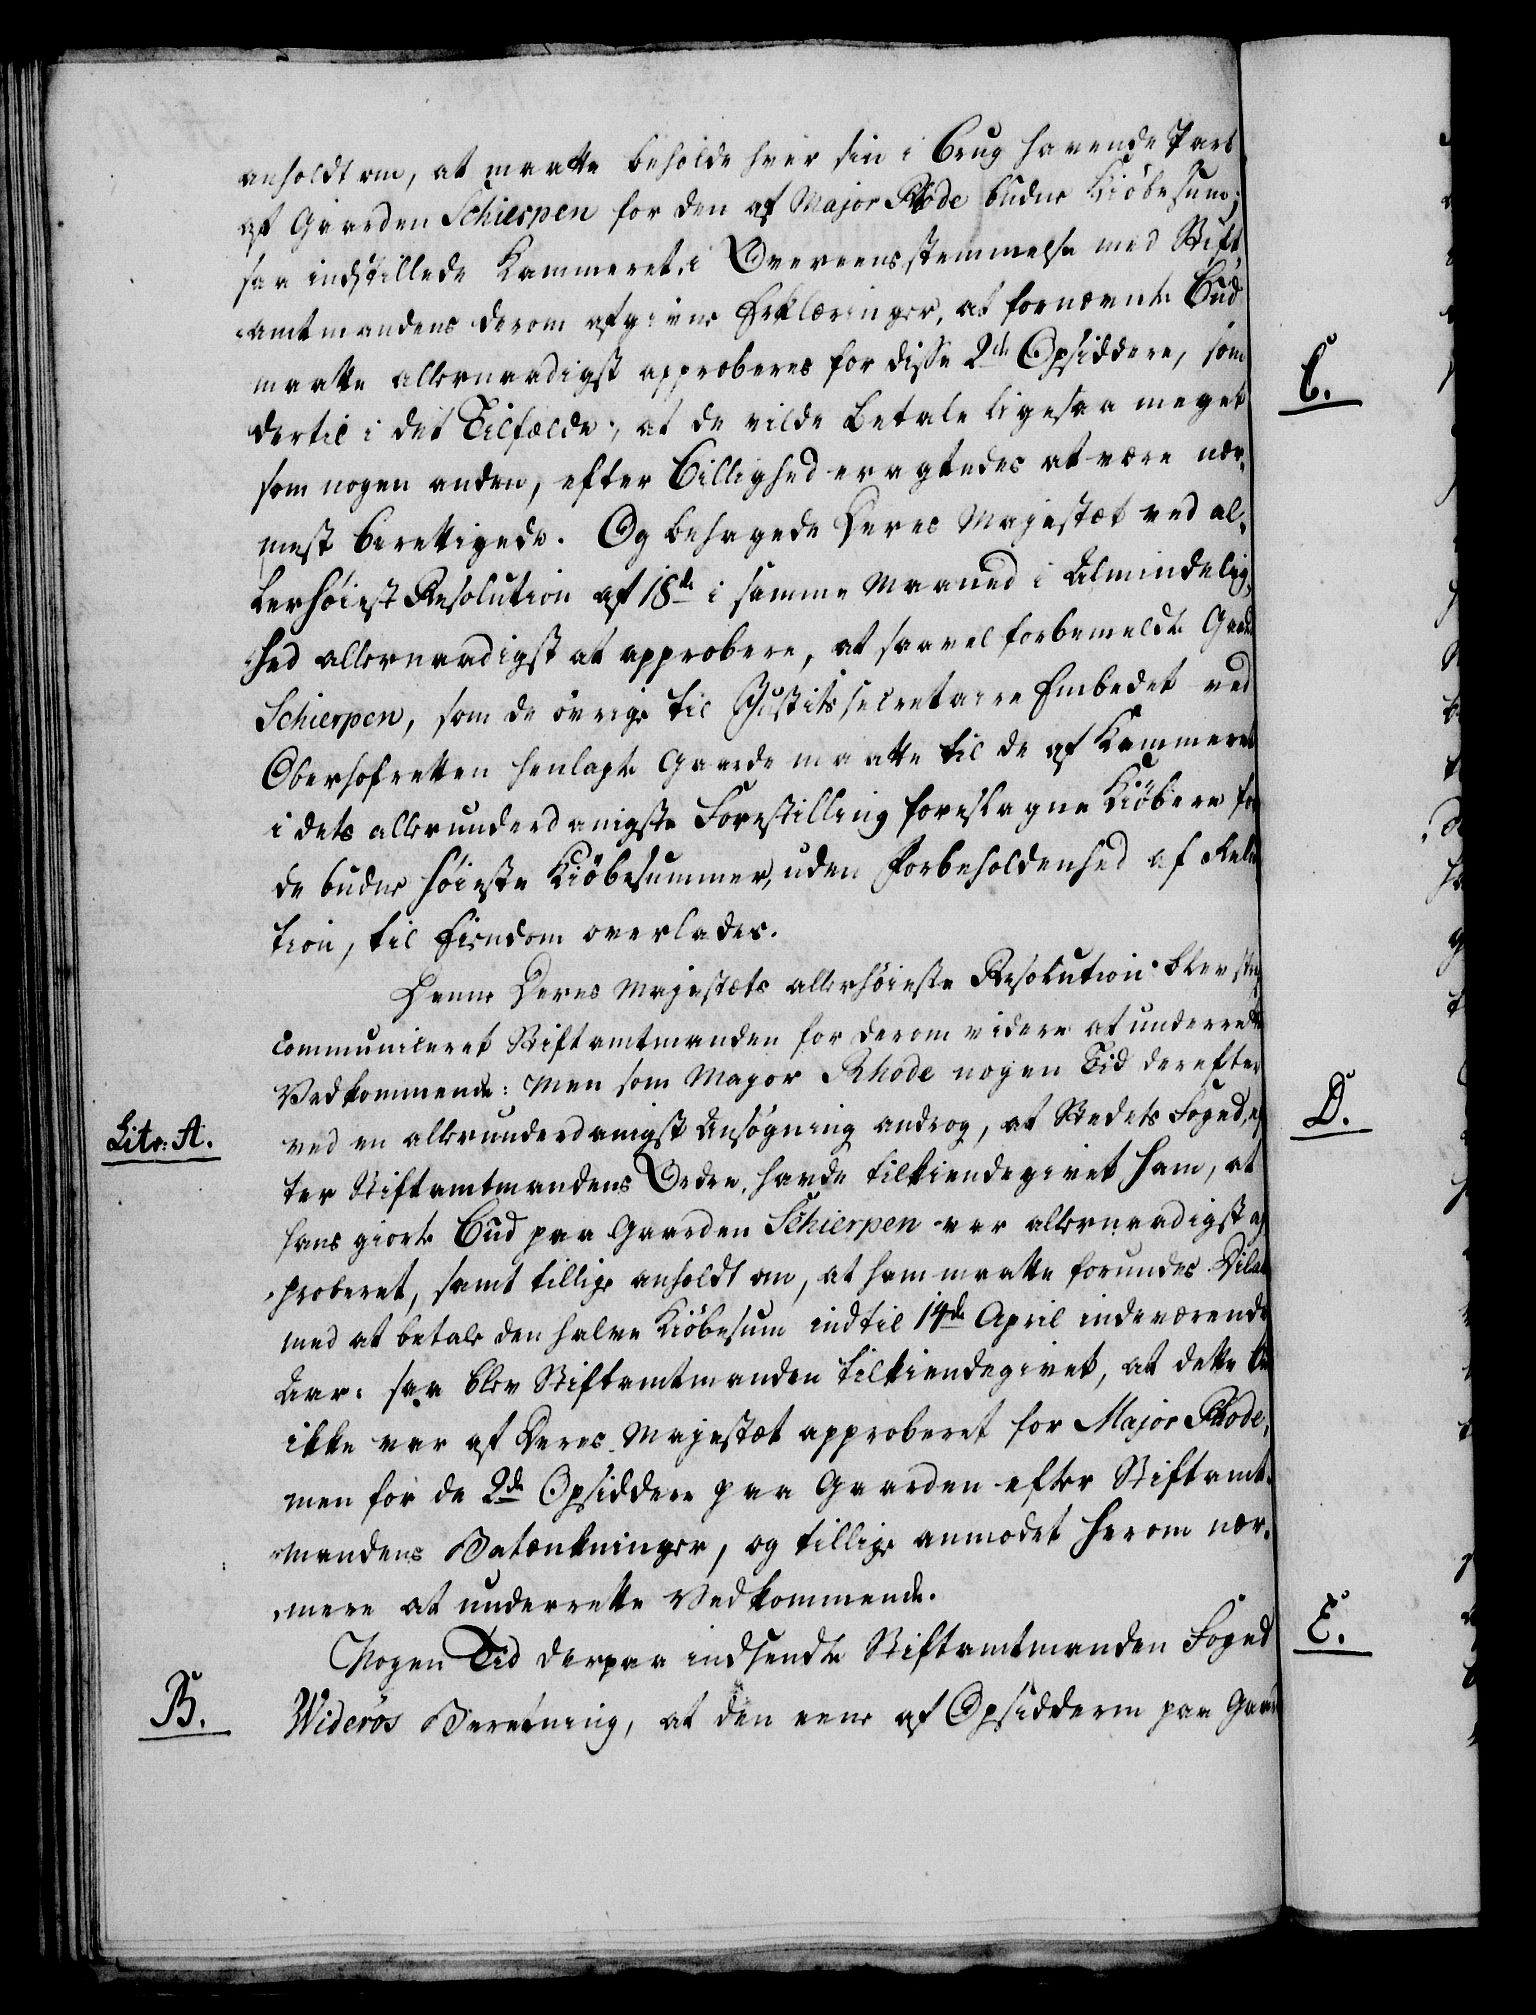 anholdt om, at maatte beholde hver sin i Brug havende Part
af Gaarden Schierpen for den af Major Rhode budne Kiöbesum;
saa indstillede Kammeret, i Overeensstemmelse med Stift¬
amtmandens derom afgivne Erklæringer, at fornævnte Bud
maatte allernaadigst approberes for disse 2de Opsiddere, som
dertil i det Tilfælde, at de vilde betale ligesaa meget
som nogen anden, efter Billighed eragtedes at være nær¬
mest berettigede. Og behagede Deres Majestæt ved al¬
lerhöiest Resolution af 18de i samme Maaned i Almindelig¬
hed allernaadigst at approbere, at saavel forbemeldte Gaard
Schierpen, som de övrige til Justitssecretaire Embedet ved
Oberhofretten henlagte Gaarde maatte til de af Kammeret
i dets allerunderdanigste Forestilling foreslagne Kiöbere for
de budne höieste Kiöbesummer, uden Forbeholdenhed af Relui¬
tion, til Eiendom overlades.
Denne Deres Majestæts allerhöieste Resolution blev strax
communiceret Stiftamtmanden for derom videre at underrette
Vedkommende: Men som Major Rhode nogen Tid derefter
Litr: A.
ved en allerunderdanigst Ansögning androg, at Stedets Foged, ef¬
ter Stiftamtmandens Ordre, havde tilkiendegivet ham, at
hans giorte Bud paa Gaarden Schierpen var allernaadigst ap¬
proberet, samt tillige anholdt om, at ham maatte forundes Dilation
med at betale den halve Kiöbesum indtil 14de April indeværende
Aar: saa blev Stiftamtmanden tilkiendegivet, at dette Bud
ikke var af Deres Majestæt approberet for Major Rhode,
men for de 2de Opsiddere paa Gaarden efter Stiftamt¬
mandens Betænkninger, og tillige anmodet herom nær¬
mere at underrette Vedkommende.
Nogen Tid derpaa indsendte Stiftamtmanden Foged
B.
Wideröes Beretning, at den eene af Opsidderne paa Gaard
C.
D.
E.